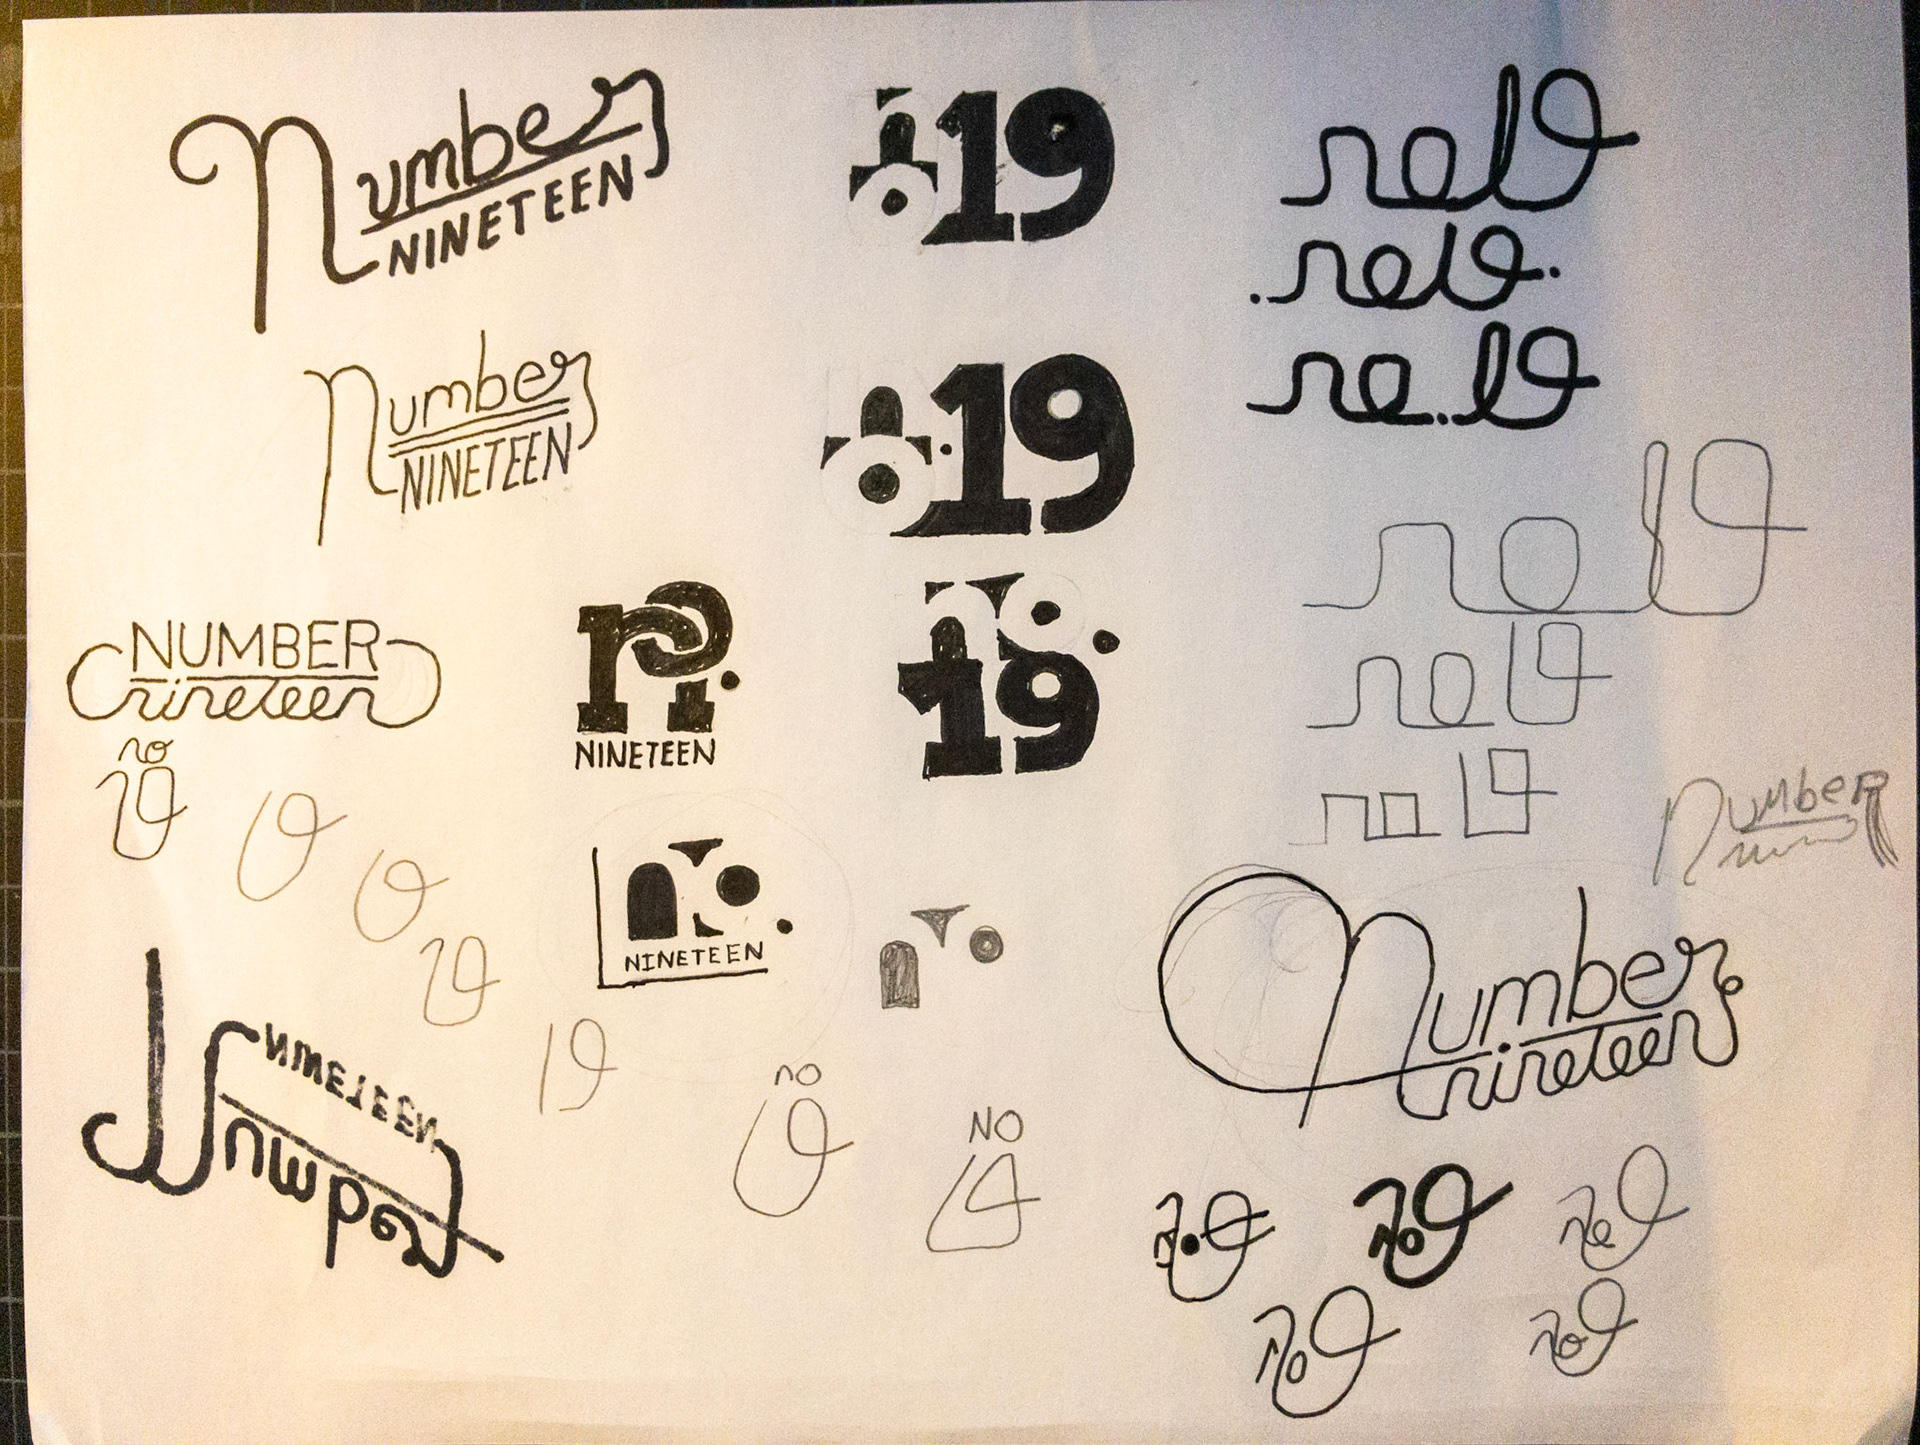 Number
NINETEEN
no19
no19
.no19.
no.19
Number
NINETEEN
no.19
no19
no19
no19
NUMBER
nineteen
no
19
no.
NINETEEN
no.
19
NumbeR
no.
NINETEEN
no
Number
nineteen
19
19
19
19
NINETEEN
Number
no
19
NO
19
no19
no19
no19
no19
no19